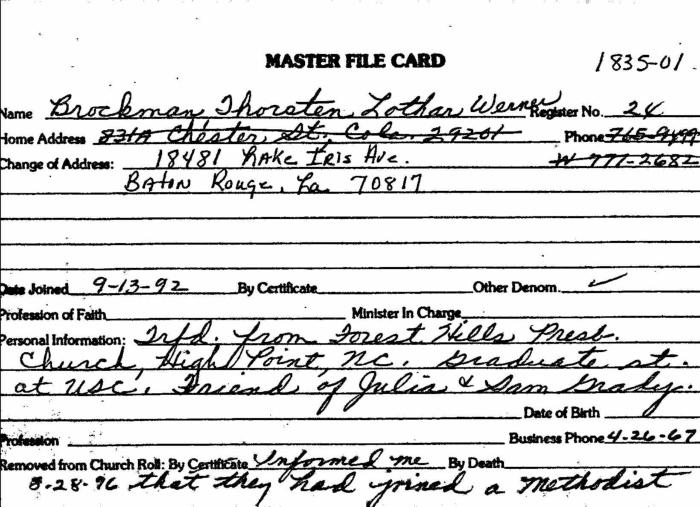 MASTER FILE CARD 1835-01
Name Brockman, Thorsten Lothar Werner Register No. 24
Home Address 831A Chester St. Cola. 29201 Phone 765-9499
Change of Address: 18481 Lake Iris Ave. W 777-2682
Baton Rouge, La 70817
Date Joined 9-13-92 By Certificate Other Denom. ✓
Profession of Faith Minister In Charge
Personal Information: Trfd. from Forest Hills Presb.
Church, High Point, NC. Graduate st.
at USC. Friend of Julia & Sam Grady.
Date of Birth
Profession Business Phone 4-26-67
Removed from Church Roll: By Certificate Informed me By Death
8-28-96 that they had joined a Methodist